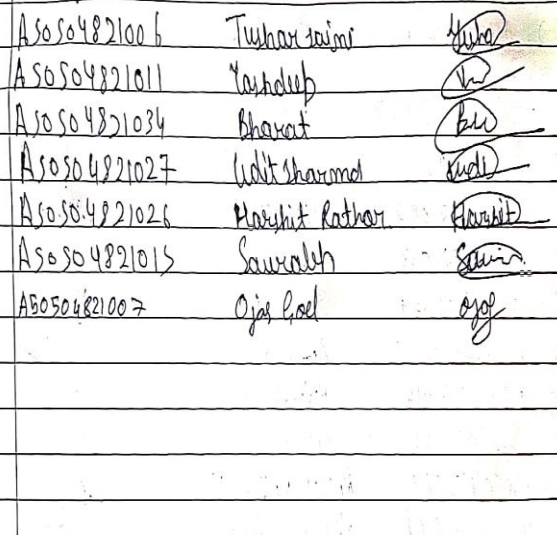 A50504821006 Tushar saini
A50504821011 Yashdeep
A50504821034 Bharat
A50504821027 Udit Sharma
A50504821026 Harshit Rathor Harshit
A50504821015 Saurabh
A50504821007 Ojas Goel ojas